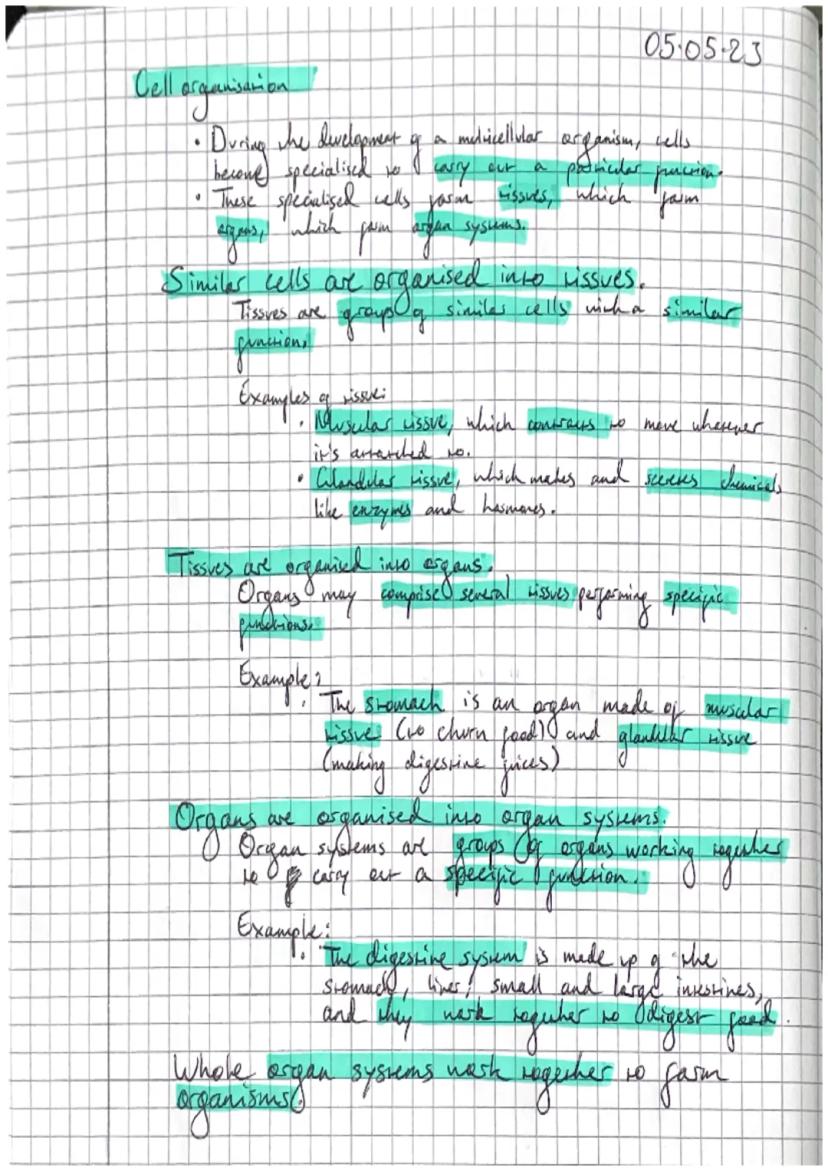 05.05.23
Cell organisation
• During the development of a multicellular organism, cells
become specialised to carry out a particular function.
• These specialised cells form tissues, which form
organs, which form organ systems.
Similar cells are organised into tissues.
Tissues are groups of similar cells with a similar
function.
Examples of tissue:
• Muscular tissue, which contracts to move wherever
it's attatched to.
• Glandular tissue, which makes and secretes chemicals
like enzymes and hormones.
Tissues are organised into organs.
Organs may comprise several tissues performing specific
functions.
Example:
• The stomach is an organ made of muscular
tissue (to churn food) and glandular tissue
(making digestive juices)
Organs are organised into organ systems.
Organ systems are groups of organs working together
to carry out a specific function.
Example:
• The digestive system is made up of the
stomach, liver, small and large intestines,
and they work together to digest food.
Whole organ systems work together to form
organisms.